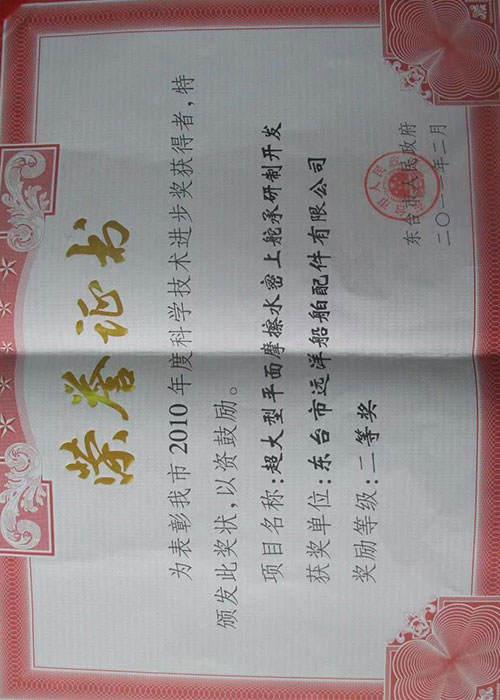 荣誉证书
为表彰我市2010年度科学技术进步奖获得者，特
颁发此奖状，以资鼓励。
项目名称：超大型平面摩擦水密上舵承研制开发
获奖单位：东台市远洋船舶配件有限公司
奖励等级：二等奖
东台市人民政府
二〇一一年二月